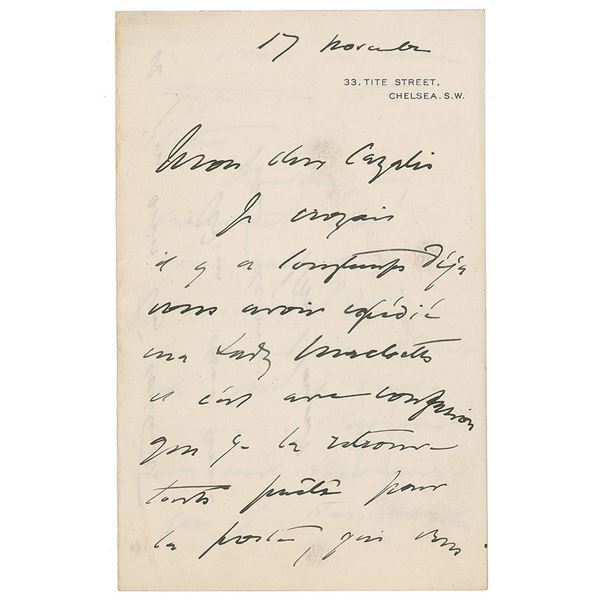 17 novembre
33, TITE STREET,
CHELSEA. S.W.
Mon cher Cazalis
Je croyais
il y a longtemps déjà
vous avoir expédié
ma Lady Macbeth
et c'est avec confusion
que je la retrouve
toute prête pour
la poste, qui vous